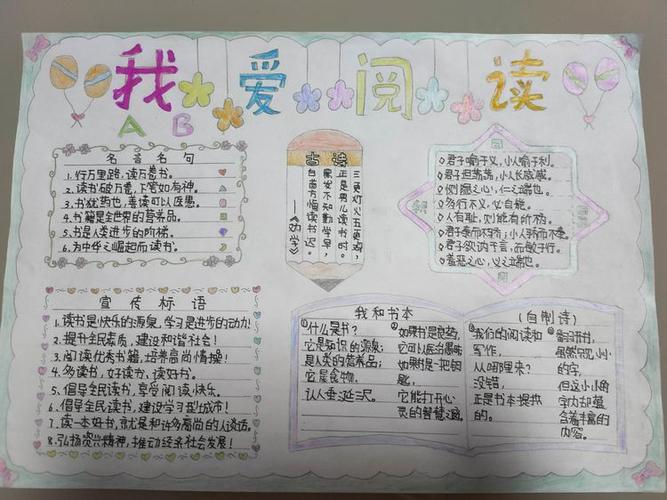 我爱阅读
A B
名言名句
1.行万里路,读万卷书。
2.读书破万卷,下笔如有神。
3.书犹药也,善读可以医愚。
4.书籍是全世界的营养品。
5.书是人类进步的阶梯。
6.为中华之崛起而读书。
古诗
三更灯火五更鸡,
正是男儿读书时。
黑发不知勤学早,
白首方悔读书迟。
——《劝学》
君子喻于义,小人喻于利。
君子坦荡荡,小人长戚戚。
恻隐之心,仁之端也。
多行不义,必自毙。
人有耻,则能有所不为。
君子泰而不骄,小人骄而不泰。
君子欲讷于言,而敏于行。
羞恶之心,义之端也。
宣传标语
1.读书是快乐的源泉,学习是进步的动力!
2.提升全民素质,建设和谐社会!
3.阅读优秀书籍,培养高尚情操!
4.多读书,好读书,读好书。
5.倡导全民读书,享受阅读快乐。
6.倡导全民读书,建设学习型城市!
7.读一本好书,就是和许多高尚的人谈话。
8.弘扬 精神,推动经余社会发展!
我和书本
①什么是书?
它是知识的源泉;
是人类的营养品;
它是食物,
让人垂涎三尺。
如果书是良药,
它可以医治愚昧
如果书是一把钥
匙,
它能打开心
灵的智慧 。
(自制诗)
①我们的阅读和
写作,
从哪里来?
没错,
正是书本提供
的。
翻开书,
虽然只见小小
的字,
但这小小的
字内却蕴
含着丰富的
内容。